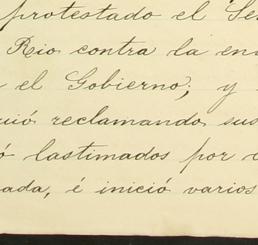 protestado el Se
Rio contra la en
el Gobierno; y
uió reclamando sus
ó lastimados por
ada, é inició varios